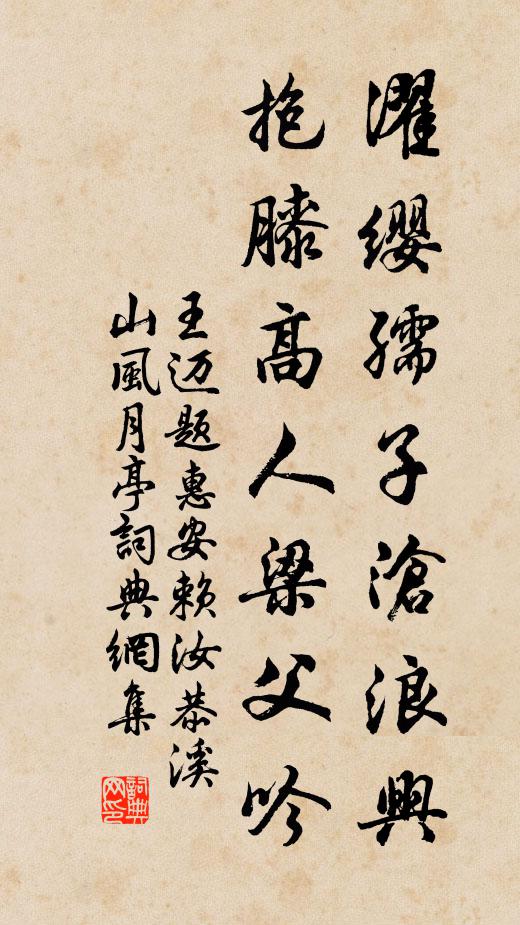 濯缨孺子滄浪興
抱膝高人梁父吟
王迈题惠安赖汝恭溪
山風月亭詞典網集
詞典
网印